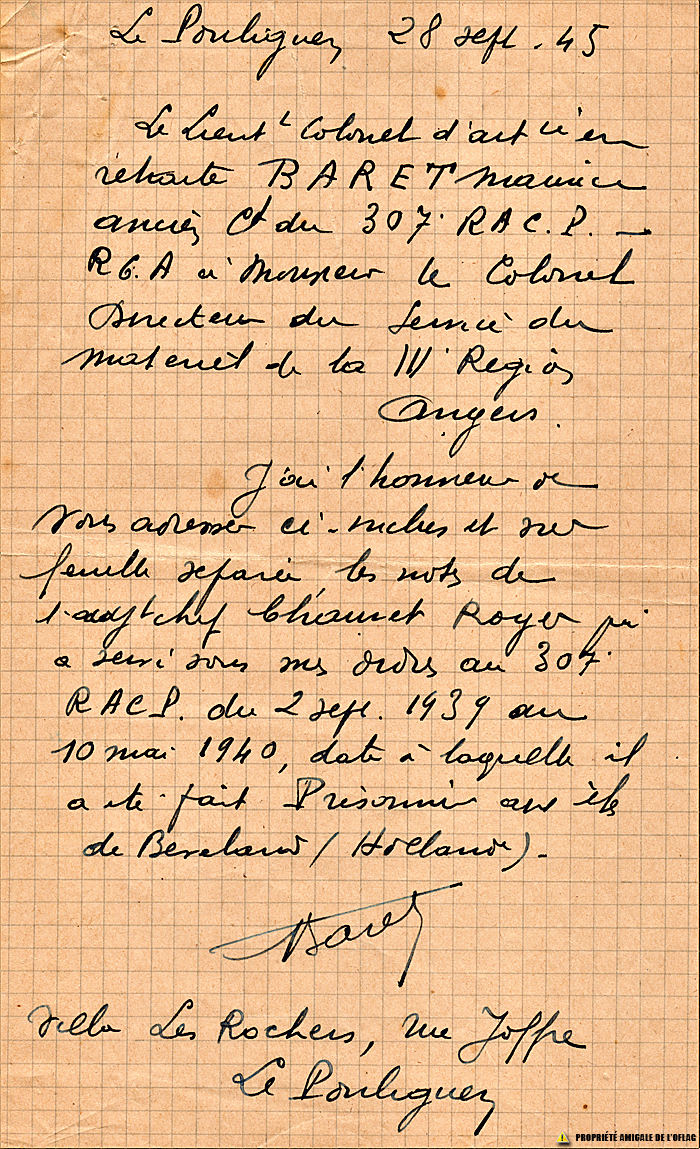 Le Pouliguen 28 sept. 45
Le Lieut<sup>t</sup> Colonel d'art<sup>ie</sup> en
retraite BARET Maurice
ancien C<sup>t</sup> du 307<sup>e</sup> R.A.C.P. —
R.G.A à Monsieur le Colonel
Directeur du Service du
matériel de la III<sup>e</sup> Région
Angers.
J'ai l'honneur de
vous adresser ci-incluses et sur
feuille séparée, les notes de
l'adj<sup>t</sup> chef Chauvet Roger qui
a servi sous mes ordres au 307<sup>e</sup>
RACP. du 2 sept. 1939 au
10 mai 1940, date à laquelle il
a été fait Prisonnier aux îles
de Beveland (Hollande).-
Baret
Villa Les Rochers, rue Joffre
Le Pouliguen
PROPRIÉTÉ AMIGALE DE L'OFLAG